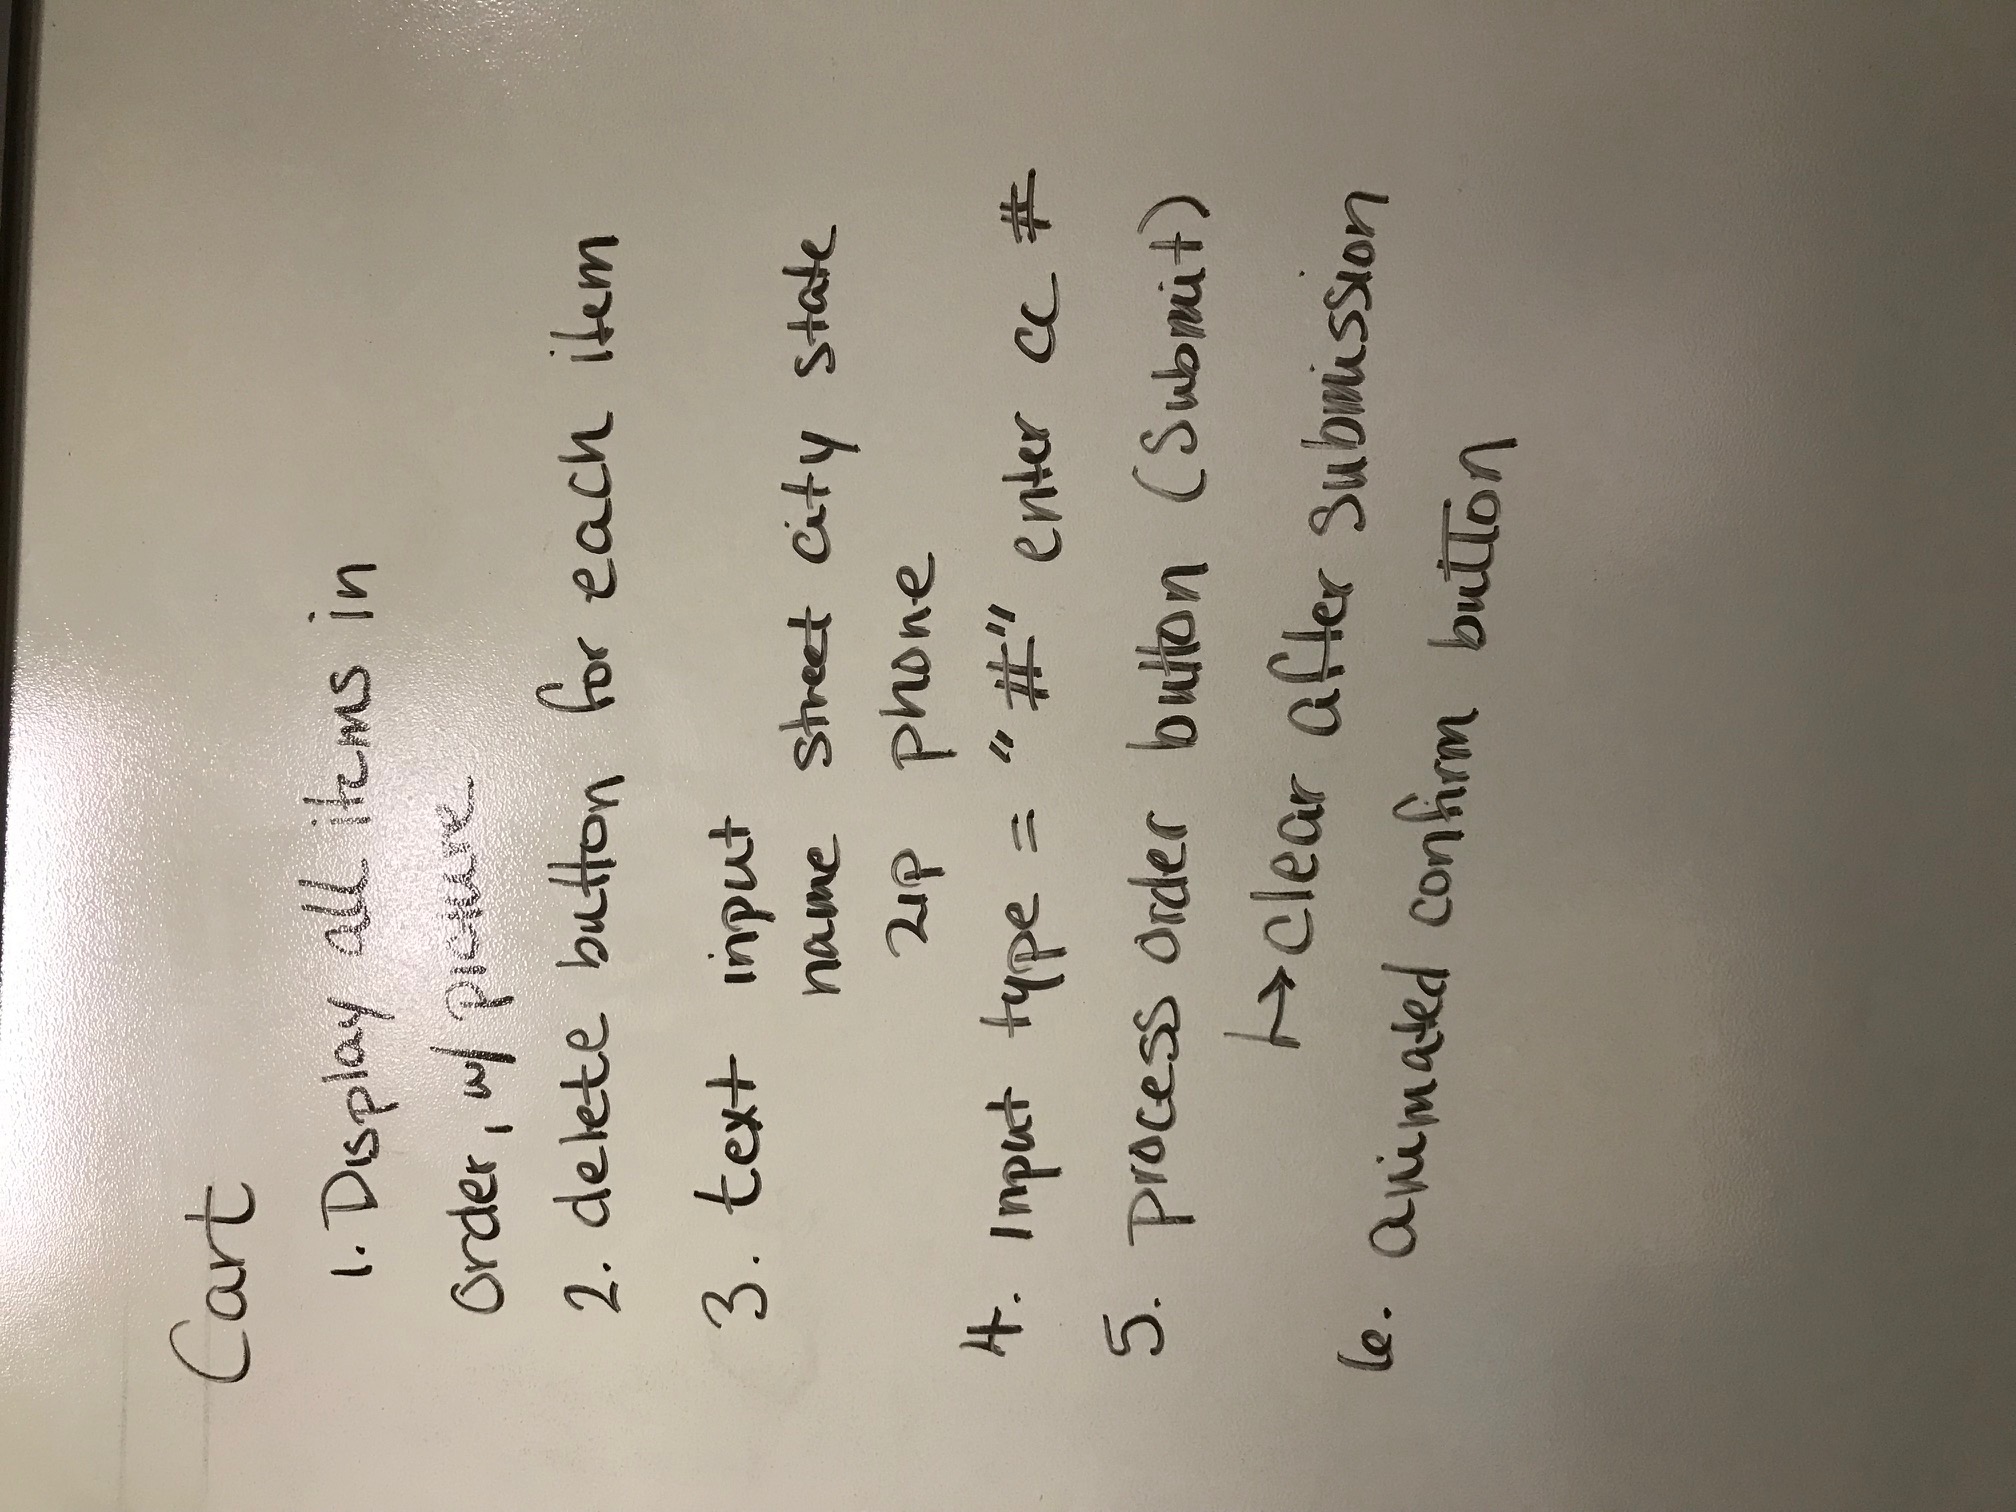 Cart
1. Display all items in
order, w/ picture
2. delete button for each item
3. text input
name street city state
zip phone
4. Input type = "#" enter cc #
5. process order button (Submit)
↳ clear after submission
6. animated confirm button